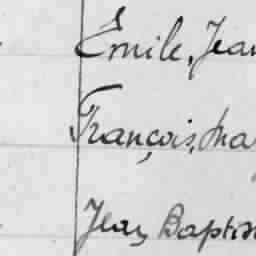 Émile, Jean
François, Ma
Jean Baptis